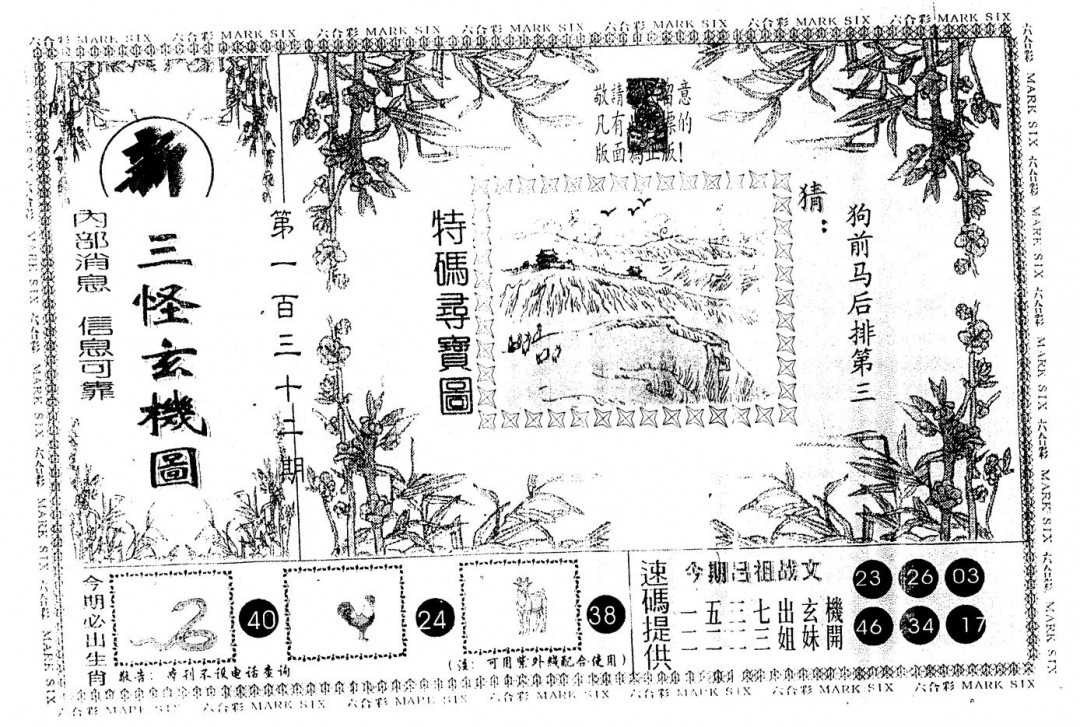 六合彩 MARK SIX 六合彩 MARK SIX 六合彩 MARK SIX 六合彩 MARK SIX 六合彩 MARK SIX 六合彩 MARK SIX 六合彩 MARK SIX
敬請 留意
凡有 的
版面為正版!
新
三怪玄機圖
內部消息 信息可靠
第一百三十二期
特碼尋寶圖
猜:
狗前马后排第三
今明必出生肖
40
24
38
敬告: 本刊不设电话查询
(注: 可用紫外线配合使用)
速碼提供
今期吕祖战文
一五三七出玄機
一一二三姐妹開
23 26 03
46 34 17
六合彩 MARK SIX 六合彩 MARK SIX 六合彩 MARK SIX 六合彩 MARK SIX 六合彩 MARK SIX 六合彩 MARK SIX 六合彩 MARK SIX